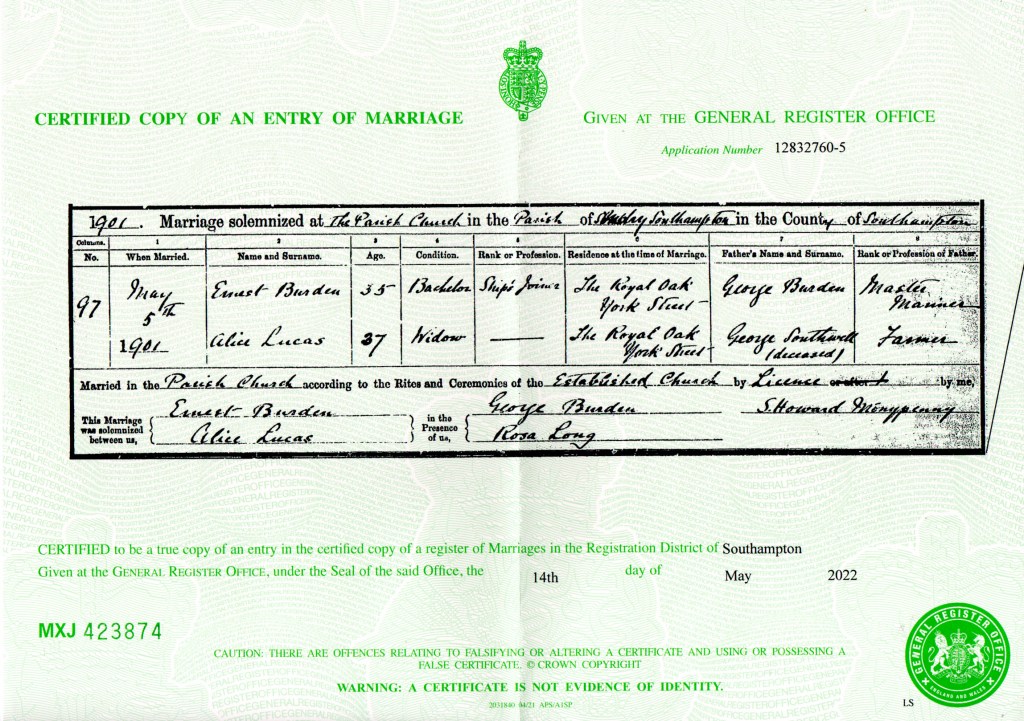 CERTIFIED COPY OF AN ENTRY OF MARRIAGE
GIVEN AT THE GENERAL REGISTER OFFICE
Application Number 12832760-5
1901. Marriage solemnized at The Parish Church in the Parish of Southampton in the County of Southampton
Columns. 1 2 3 4 5 6 7 8
No. When Married. Name and Surname. Age. Condition. Rank or Profession. Residence at the time of Marriage. Father's Name and Surname. Rank or Profession of Father.
97 May 5th 1901
Ernest Burden 35 Bachelor Ship's Joiner The Royal Oak York Street George Burden Master Mariner
Alice Lucas 37 Widow — The Royal Oak York Street George Southwell (deceased) Farmer
Married in the Parish Church according to the Rites and Ceremonies of the Established Church by Licence or after by me,
This Marriage was solemnized between us, Ernest Burden Alice Lucas in the Presence of us, George Burden Rosa Long S. Howard Monypenny
CERTIFIED to be a true copy of an entry in the certified copy of a register of Marriages in the Registration District of Southampton
Given at the GENERAL REGISTER OFFICE, under the Seal of the said Office, the 14th day of May 2022
MXJ 423874
CAUTION: THERE ARE OFFENCES RELATING TO FALSIFYING OR ALTERING A CERTIFICATE AND USING OR POSSESSING A
FALSE CERTIFICATE. © CROWN COPYRIGHT
WARNING: A CERTIFICATE IS NOT EVIDENCE OF IDENTITY.
2031840 04/21 APS/A1SP
GENERAL REGISTER OFFICE
ENGLAND AND WALES
LS